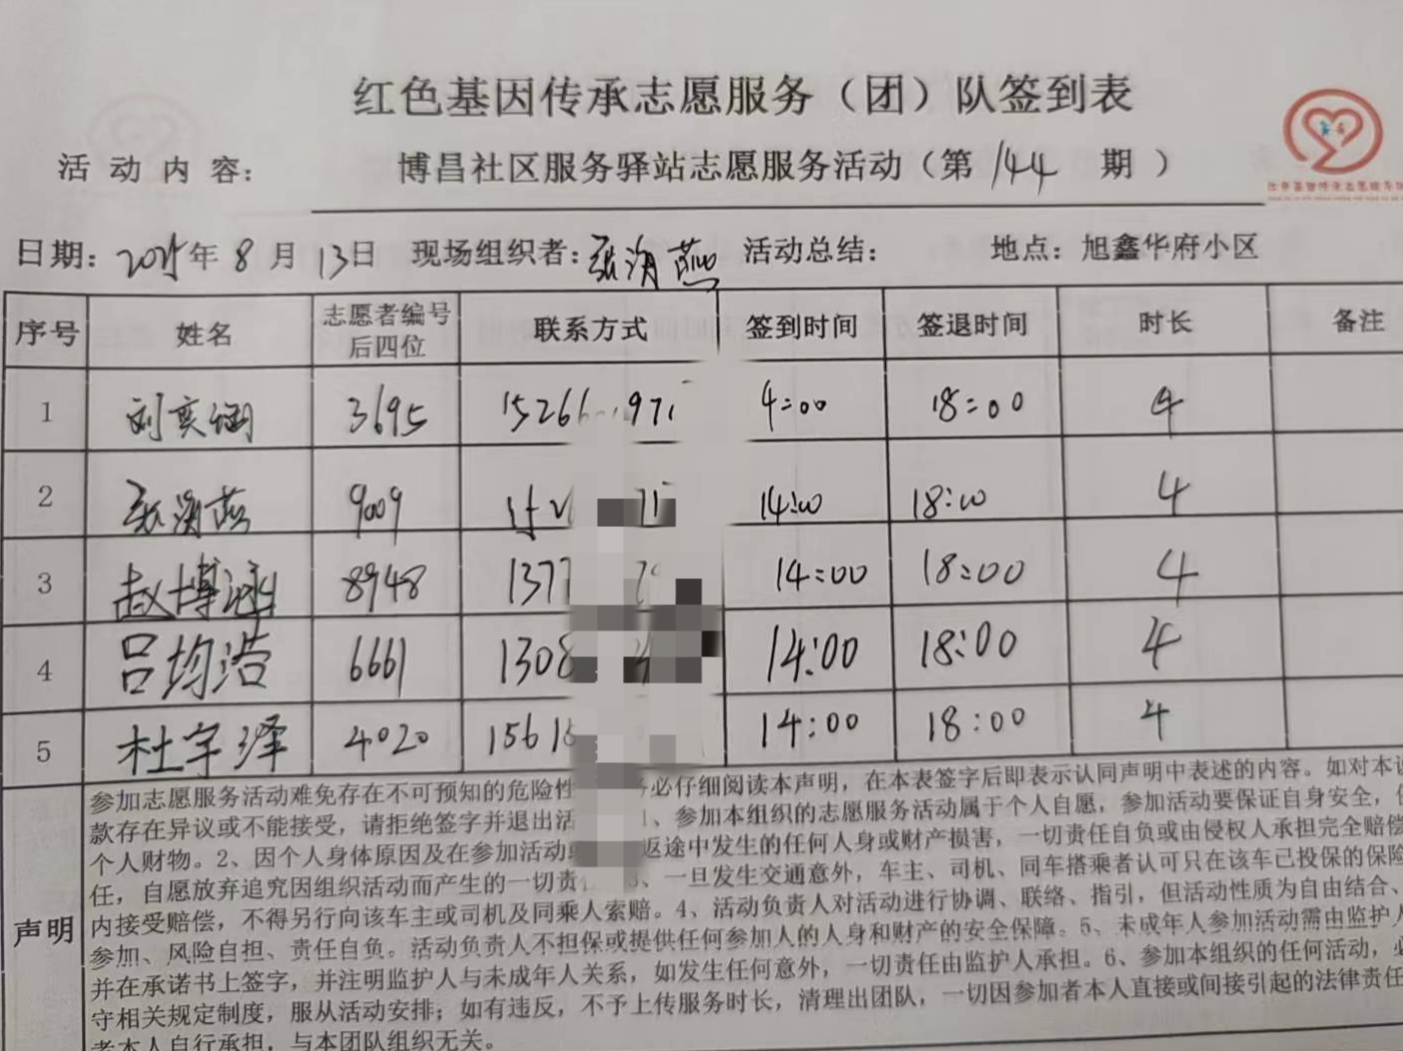 红色基因传承志愿服务（团）队签到表
活动内容： 博昌社区服务驿站志愿服务活动（第144期）
日期：2025年8月13日 现场组织者：张海燕 活动总结： 地点：旭鑫华府小区
序号 姓名 志愿者编号后四位 联系方式 签到时间 签退时间 时长 备注
1 刘奕涵 3695 4:00 18:00 4
2 张海燕 9009 14:00 18:00 4
3 赵博涵 8948 14:00 18:00 4
4 吕均浩 6661 14:00 18:00 4
5 杜宇泽 4020 14:00 18:00 4
声明
参加志愿服务活动难免存在不可预知的危险性 必仔细阅读本声明，在本表签字后即表示认同声明中表述的内容。如对本
款存在异议或不能接受，请拒绝签字并退出活 1、参加本组织的志愿服务活动属于个人自愿，参加活动要保证自身安全，
个人财物。2、因个人身体原因及在参加活动 返途中发生的任何人身或财产损害，一切责任自负或由侵权人承担完全赔偿
任，自愿放弃追究因组织活动而产生的一切责 3、一旦发生交通意外，车主、司机、同车搭乘者认可只在该车已投保的保险
内接受赔偿，不得另行向该车主或司机及同乘人索赔。4、活动负责人对活动进行协调、联络、指引，但活动性质为自由结合、
参加、风险自担、责任自负。活动负责人不担保或提供任何参加人的人身和财产的安全保障。5、未成年人参加活动需由监护人
并在承诺书上签字，并注明监护人与未成年人关系，如发生任何意外，一切责任由监护人承担。6、参加本组织的任何活动，必
守相关规定制度，服从活动安排；如有违反，不予上传服务时长，清理出团队，一切因参加者本人直接或间接引起的法律责任
者本人自行承担，与本团队组织无关。